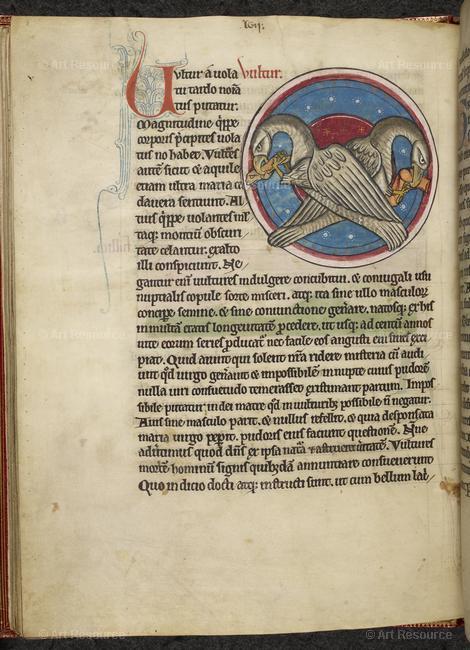 Vultur.
Vultur a uola
tu tardo noīa
tus putatur.
Magnitudine q̄ppe
corporis p̄cipites uola
tus nō habet. Vultures
autē sicut & aquile
etiam ultra maria ca
dauera sentiunt. Al
tius q̄ppe uolantes
montiū obscuri
tate celantur. ex alto
illi conspiciunt. Ne/
gantur eni uultures indulgere concubitui. & coniugali usu
nuptialis copule sorte misceri. atq; ita sine ullo masculoꝝ
concipe semine. & sine coniunctione geñare. natosq; ex his
in multā etatis longeuitatē p̄cedere. ut usq; ad centū annos
uite eorum series p̄ducat̄. nec facile eos angusti eui finis exci
piat. Quid aiunt qui solent nr̄a ridere misteria cū audi
unt qd̄ uirgo geñauit & impossibilē innupte cuius pudorē
nulla uiri consuetudo temerasset existimant partum. Impos
sibile putatur in dei matre qd̄ in uulturib; possibile nō negatur.
Auis sine masculo parit. & nullus refellit. & quia desponsata
maria uirgo pep̄it. pudoris eius faciunt questionē. Nūe
aduertimus quod dn̄s ex ipsa natura
uultures
mortē hominū signis quibusdā annuntiare consueuerunt
Quo indicio docti atq; instructi sunt. ut cum bellum
© Art Resource
© Art Resource
© Art Resource
© Art Resource
© Art Resource